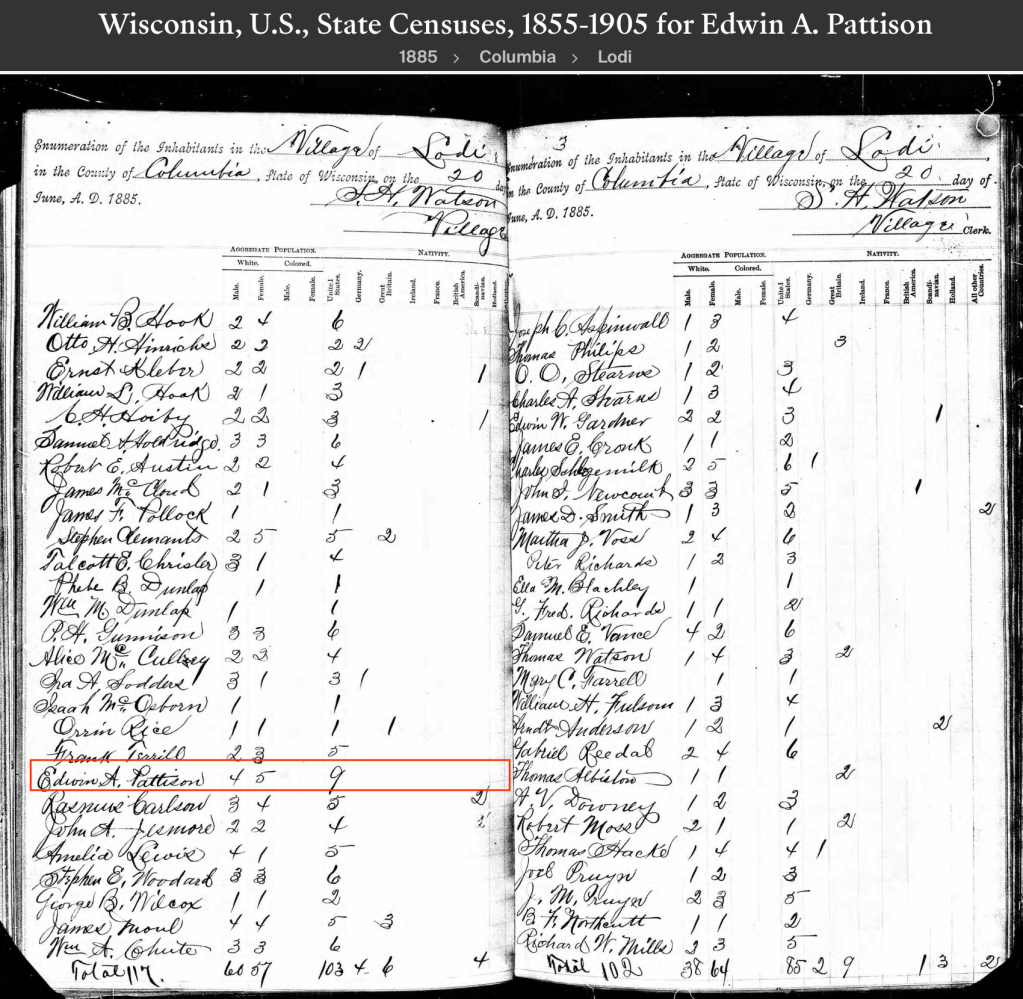 Wisconsin, U.S., State Censuses, 1855-1905 for Edwin A. Pattison
1885 > Columbia > Lodi
Enumeration of the Inhabitants in the Village of Lodi
in the County of Columbia, State of Wisconsin, on the 20 day
June, A. D. 1885.
S. H. Watson
Village
AGGREGATE POPULATION. NATIVITY.
White. Colored.
Male. Female. Male. Female. United States. Germany. Great Britain. Ireland. France. British America. Scandinavian. Holland.
William B. Hook 2 4 6
Otto H. Hinrichs 2 2 2 2
Ernst Kleber 2 2 2 1 1
William L. Hook 2 1 3
C. H. Hoiby 2 2 3 1
Samuel Holdridge 3 3 6
Robert E. Austin 2 2 4
James Mc Cloud 2 1 3
James F. Pollock 1 1
Stephen Clemants 2 5 5 2
Talcott E. Chrisler 3 1 4
Phebe B. Dunlap 1 1
Wm M. Dunlap 1 1
P. H. Gunnison 3 3 6
Alice Mc Cullsey 2 2 4
Ira A. Sodders 3 1 3 1
Isaah Mc Osborn 1 1
Orrin Rice 1 1 1 1
Frank Terrill 2 3 5
Edwin A. Pattison 4 5 9
Rasmus Carlson 3 4 5 2
John A. Jesmore 2 2 4
Amelia Lewis 4 1 5
Stephen E. Woodard 3 3 6
George B. Wilcox 1 1 2
James Moul 4 4 5 3
Wm A. Chute 3 3 6
Total 117. 60 57 103 4 6 4
3
Enumeration of the Inhabitants in the Village of Lodi
in the County of Columbia, State of Wisconsin, on the 20 day of
June, A. D. 1885.
S. H. Watson
Village Clerk.
AGGREGATE POPULATION. NATIVITY.
White. Colored.
Male. Female. Male. Female. United States. Germany. Great Britain. Ireland. France. British America. Scandinavian. Holland. All other Countries.
Joseph C. Aspinwall 1 3 4
Thomas Philips 1 2 3
O. O. Stearns 1 2 3
Charles A. Stearns 1 3 4
Edwin W. Gardner 2 2 3 1
James E. Cronk 1 1 2
Charles 2 5 6 1
John S. Newcourt 3 3 5 1
James D. Smith 1 3 2 2
Martha J. Voss 2 4 6
Peter Richards 1 2 3
Ella M. Blachley 1 1
G. Fred. Richards 1 1 2
Samuel E. Vance 4 2 6
Thomas Watson 1 4 3 2
Mary C. Farrell 1 1
William H. Fulsom 1 3 4
Anderson 1 2 1 2
Gabriel Reedal 2 4 6
Thomas Albiston 1 1 2
A. V. Downey 1 2 3
Robert Moss 2 1 1 2
Thomas Hacke 1 4 4 1
Joel Pruyn 1 2 3
J. M. Pruyn 2 3 5
B. F. Northcutt 1 1 2
Richard W. Mills 2 3 5
Total 102 38 64 85 2 9 1 3 2